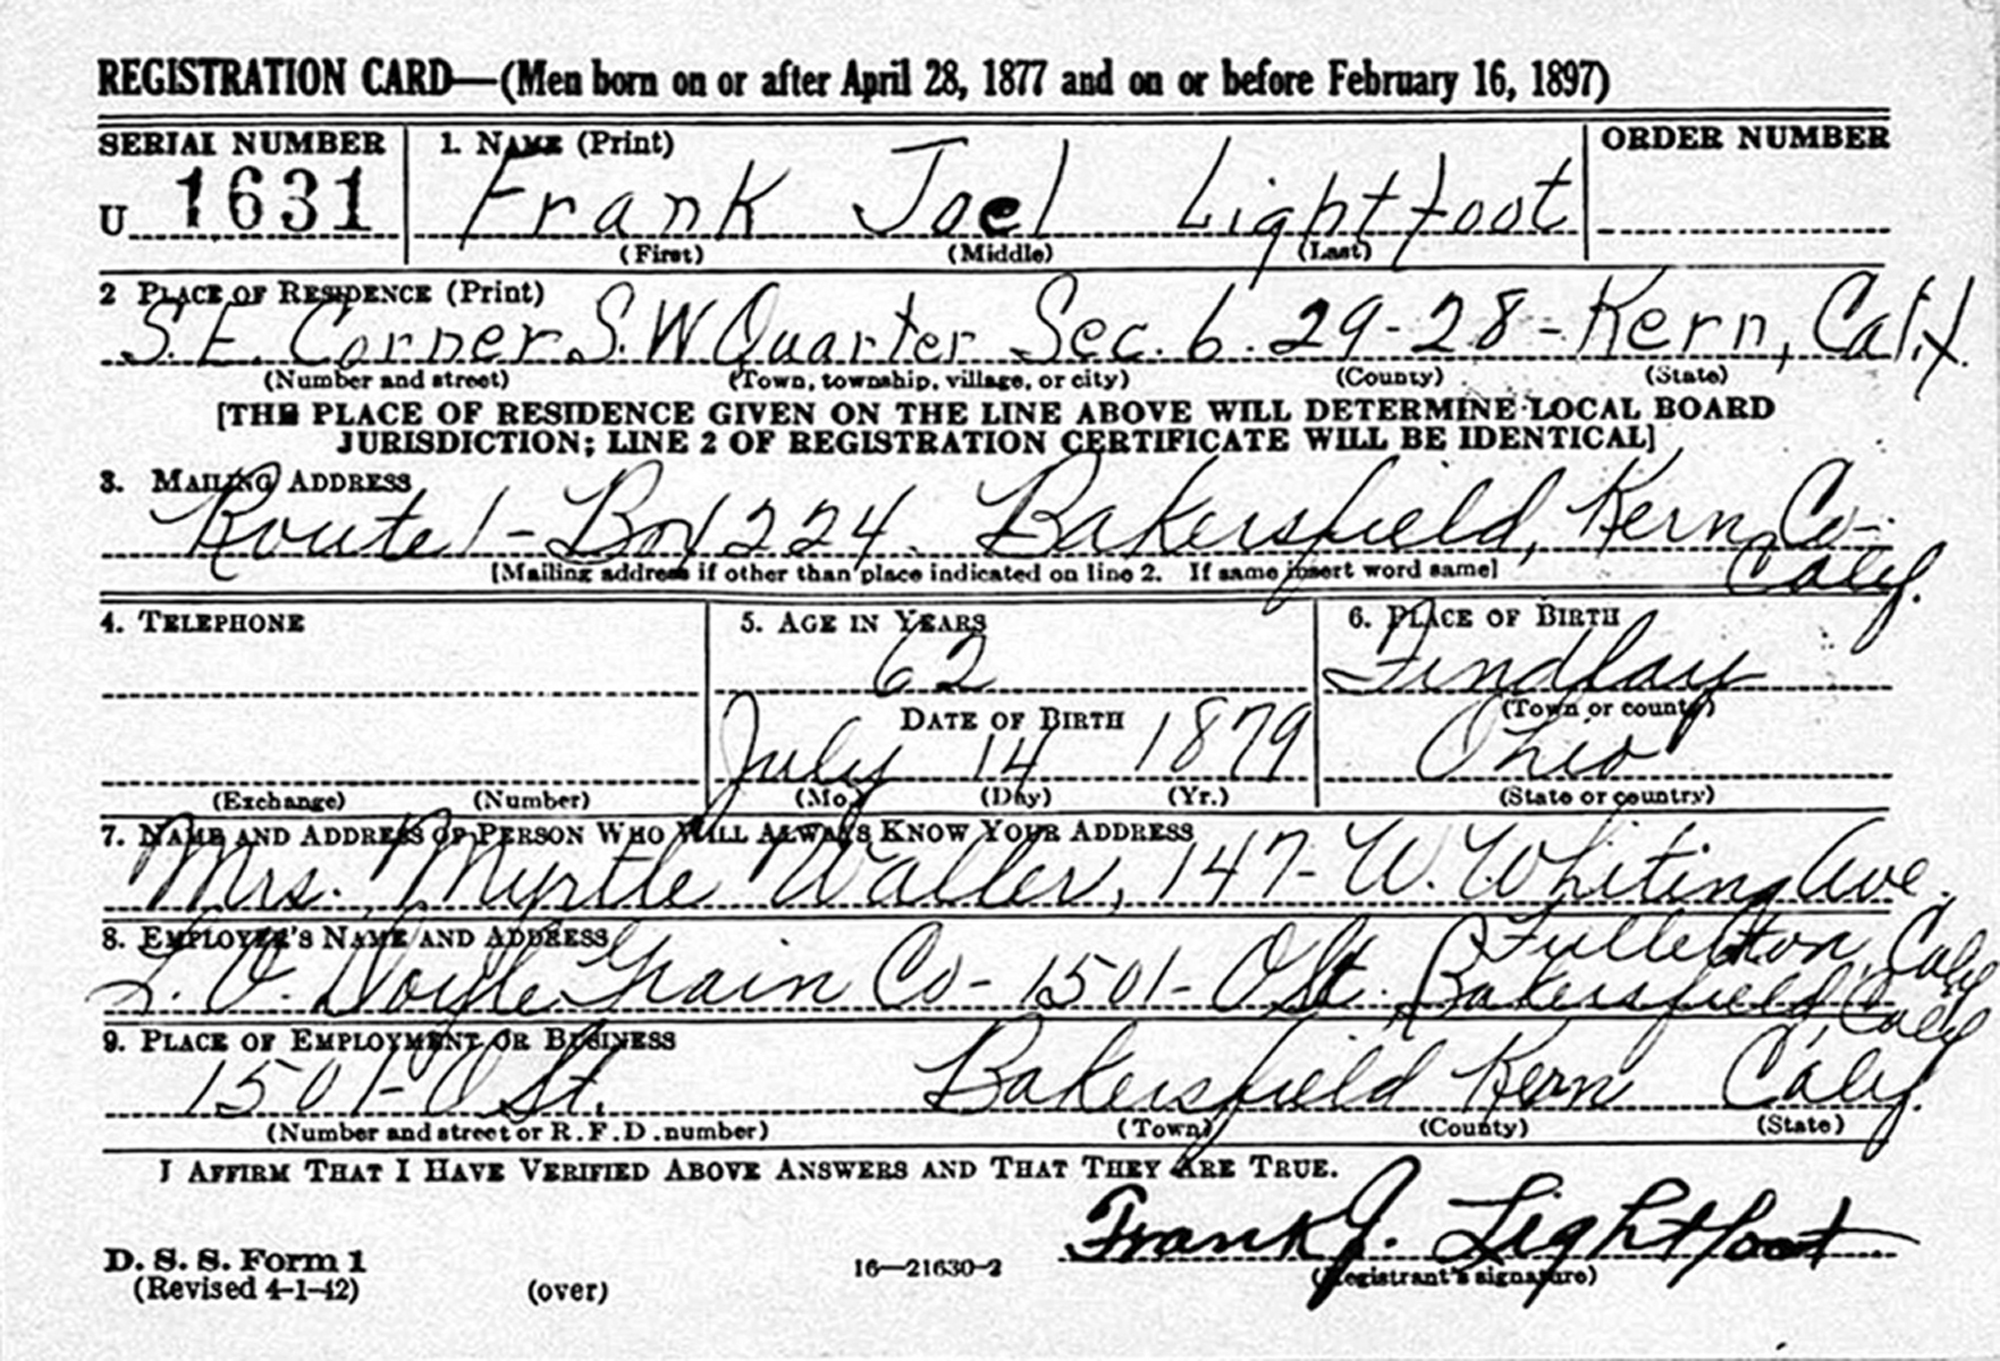 REGISTRATION CARD—(Men born on or after April 28, 1877 and on or before February 16, 1897)
SERIAL NUMBER 1. NAME (Print) ORDER NUMBER
U 1631 Frank Joel Lightfoot
(First) (Middle) (Last)
2 PLACE OF RESIDENCE (Print)
S.E. Corner S.W Quarter Sec. 6. 29-28- Kern, Calif.
(Number and street) (Town, township, village, or city) (County) (State)
[THE PLACE OF RESIDENCE GIVEN ON THE LINE ABOVE WILL DETERMINE LOCAL BOARD
JURISDICTION; LINE 2 OF REGISTRATION CERTIFICATE WILL BE IDENTICAL]
3. MAILING ADDRESS
Route 1- Box 224. Bakersfield, Kern Co-
Calif.
[Mailing address if other than place indicated on line 2. If same insert word same]
4. TELEPHONE 5. AGE IN YEARS 6. PLACE OF BIRTH
62 Findlay
DATE OF BIRTH (Town or county)
July 14 1879 Ohio
(Exchange) (Number) (Mo.) (Day) (Yr.) (State or country)
7. NAME AND ADDRESS OF PERSON WHO WILL ALWAYS KNOW YOUR ADDRESS
Mrs. Myrtle Waller, 147- W. Whiting Ave.
Fullerton, Calif
8. EMPLOYER'S NAME AND ADDRESS
L. V. Doyle Grain Co- 1501- O St. Bakersfield, Calif
9. PLACE OF EMPLOYMENT OR BUSINESS
1501- O St. Bakersfield Kern Calif.
(Number and street or R. F. D. number) (Town) (County) (State)
I AFFIRM THAT I HAVE VERIFIED ABOVE ANSWERS AND THAT THEY ARE TRUE.
Frank J. Lightfoot
D. S. S. Form 1
(Revised 4-1-42) (over) 16—21630-2 (Registrant's signature)